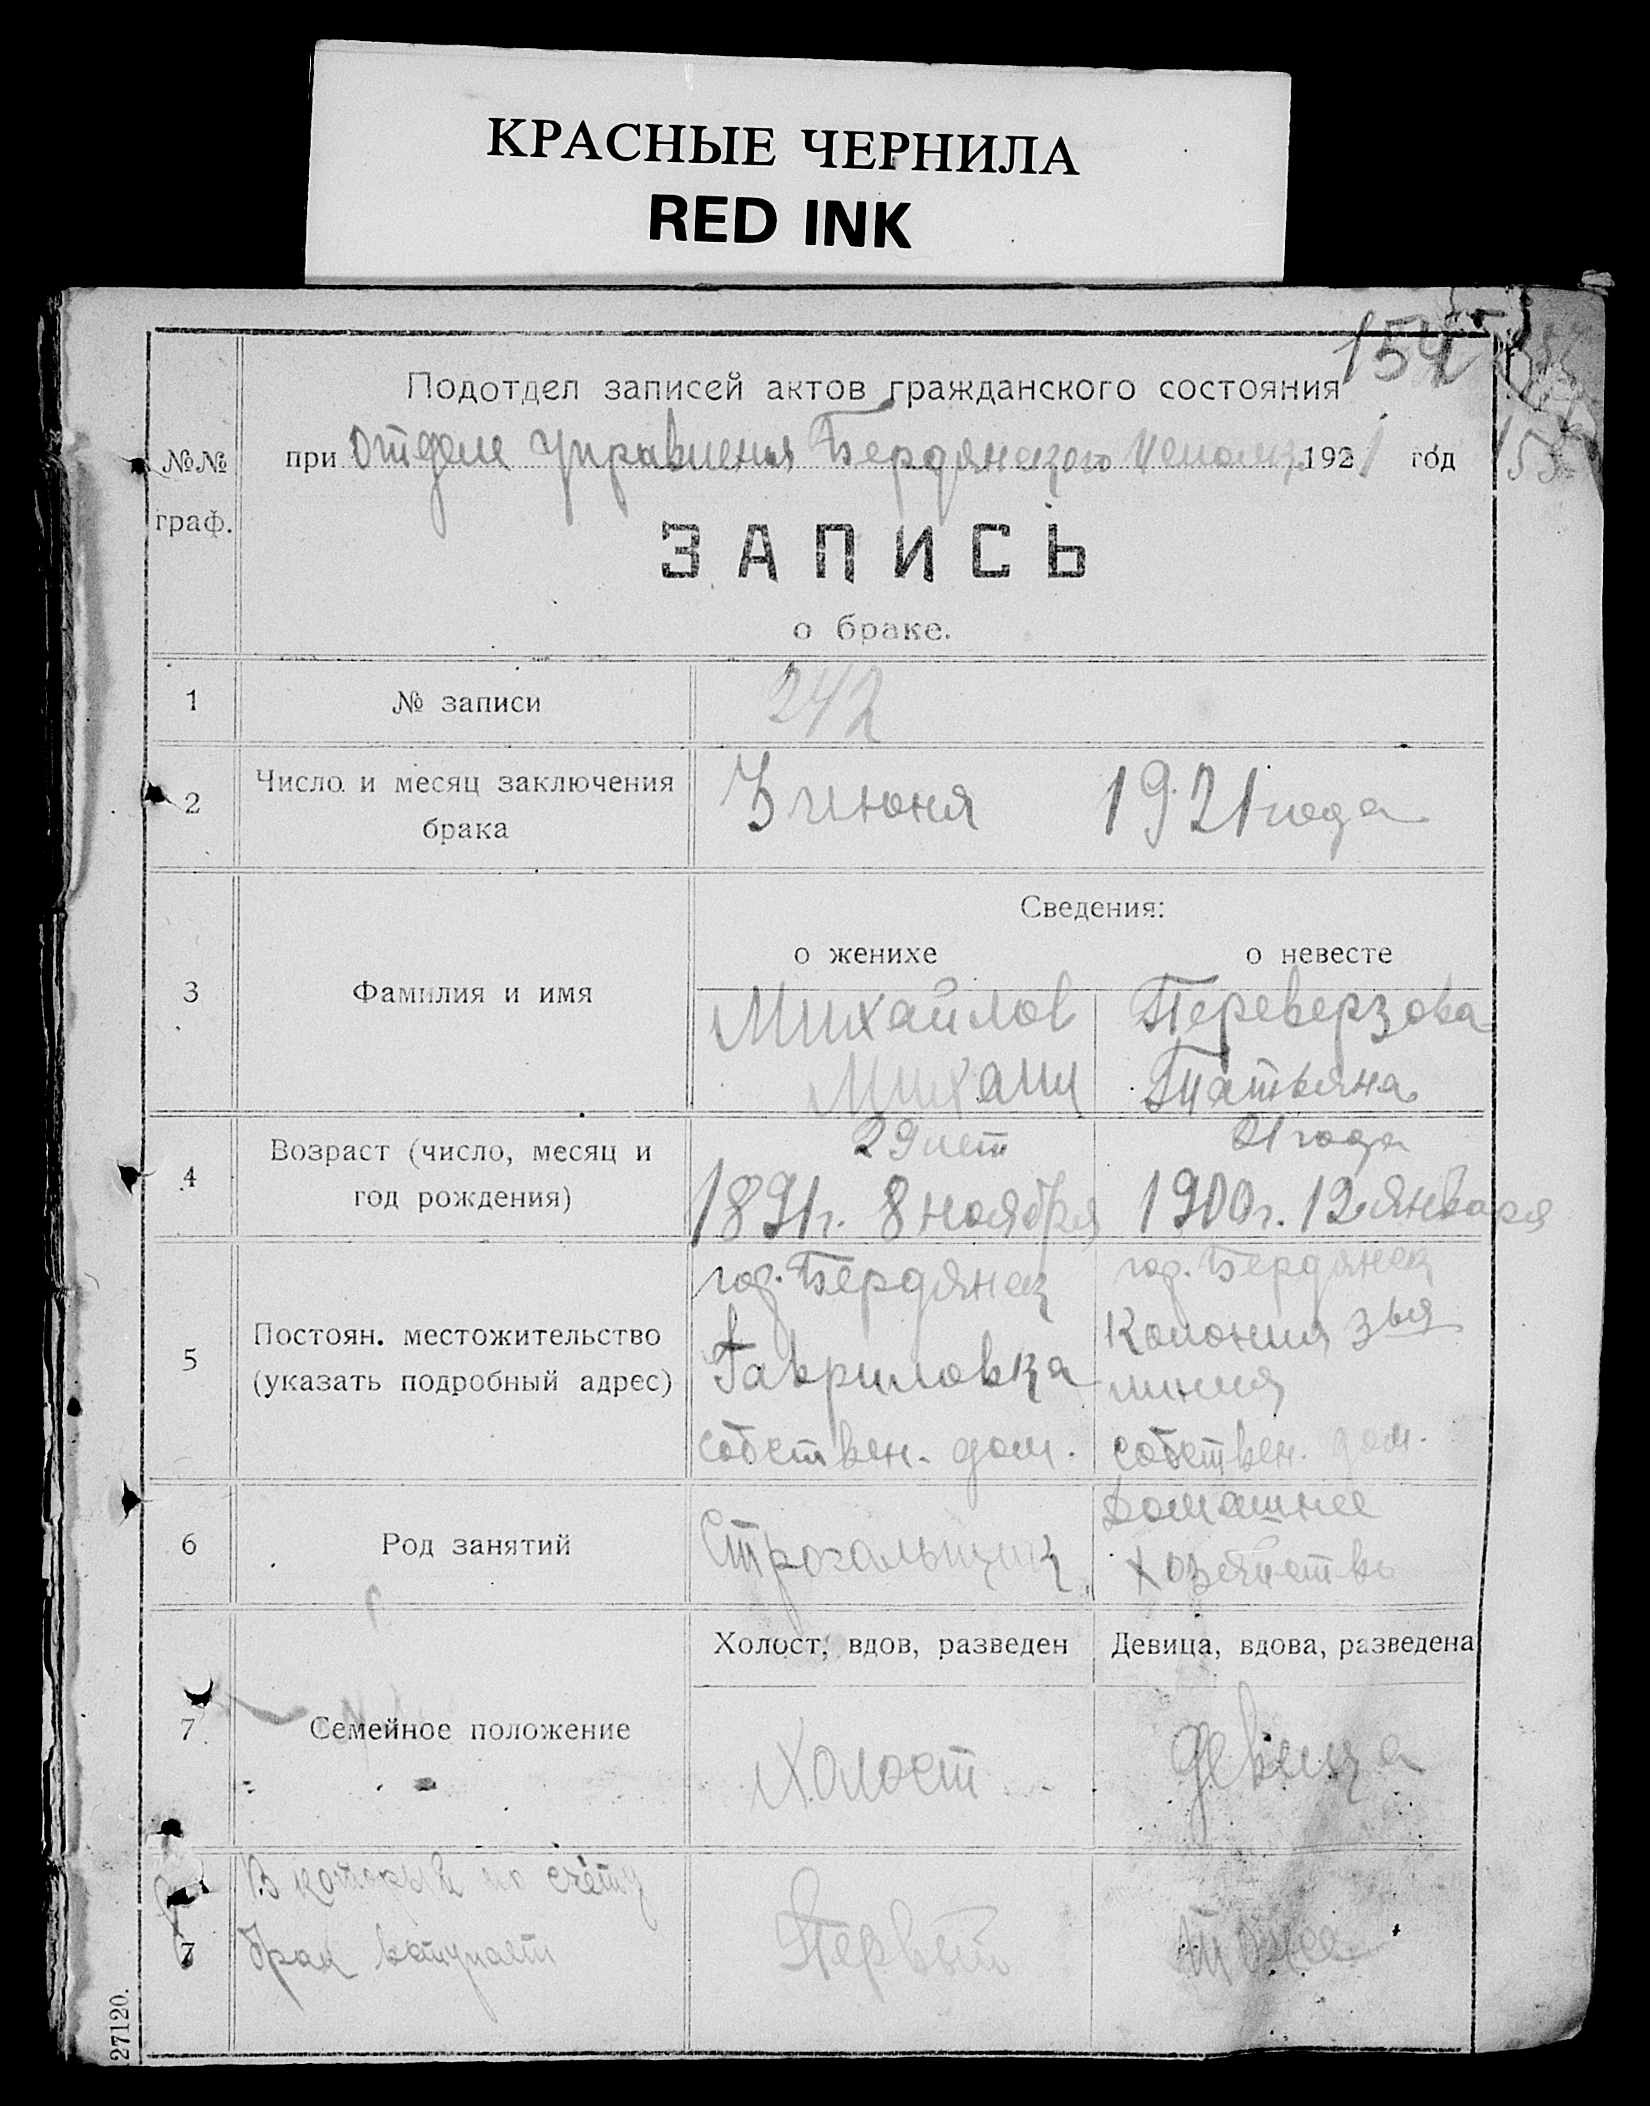 КРАСНЫЕ ЧЕРНИЛА
RED INK
154
Подотдел записей актов гражданского состояния
№№ при отделе управления Бердянского исполк. 1921 год
граф.
ЗАПИСЬ
о браке.
1 № записи 242
2 Число и месяц заключения брака 3 июня 1921 года
Сведения:
о женихе о невесте
3 Фамилия и имя Михайлов Переверзова
Михаил Татьяна
4 Возраст (число, месяц и год рождения) 29 лет 21 года
1891г. 8 ноября 1900г. 12 января
5 Постоян. местожительство (указать подробный адрес) гор. Бердянск гор. Бердянск
Гавриловка Колония 3ья
линия
собствен. дом. собствен. дом.
6 Род занятий Строгальщик Домашнее
хозяйство
Холост, вдов, разведен Девица, вдова, разведена
7 Семейное положение Холост девица
7 В который по счету
брак вступает Первый тоже
27120.